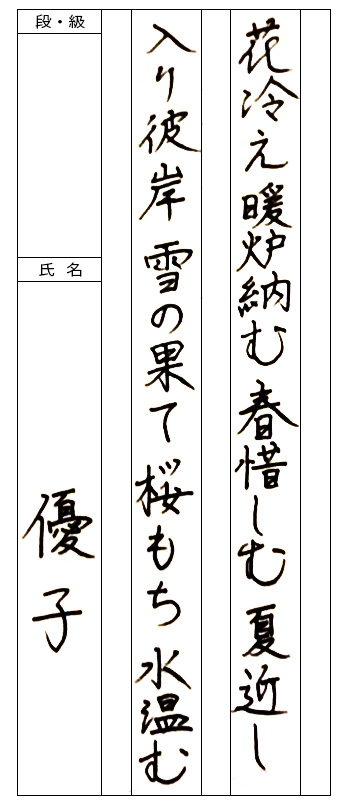 花冷え 暖炉納む 春惜しむ 夏近し
入り彼岸 雪の果て 桜もち 水温む
段・級
氏名
優子